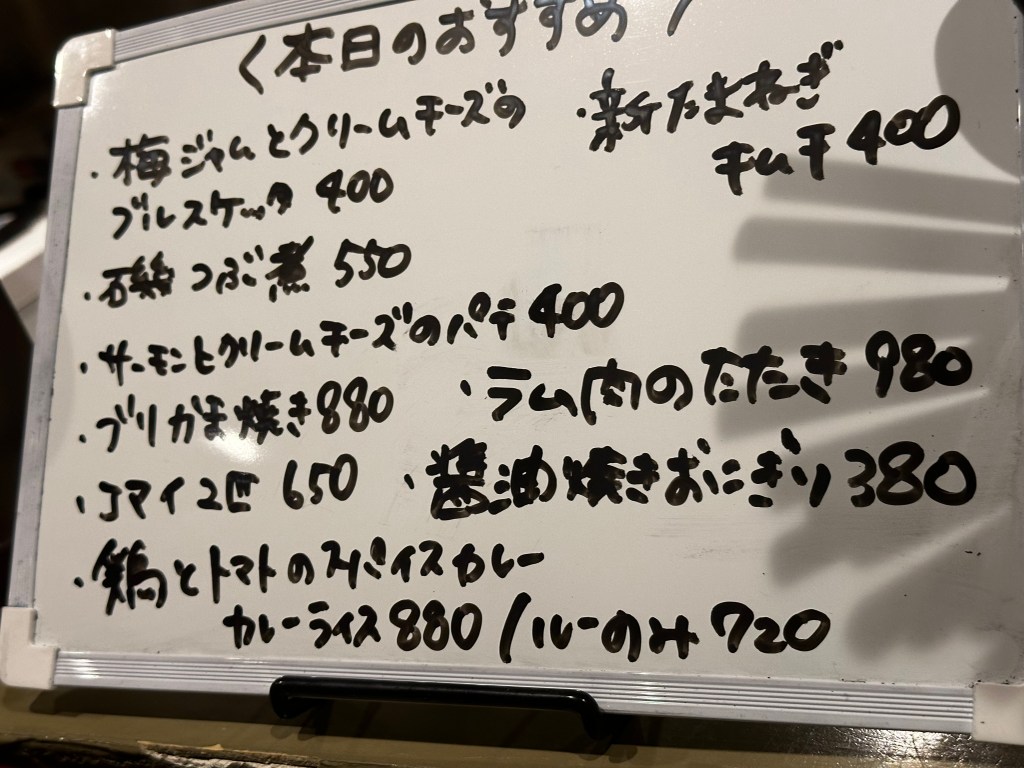 〈本日のおすすめ〉
・梅ジャムとクリームチーズの
ブルスケッタ 400
・磯つぶ煮 550
・サーモンとクリームチーズのパテ 400
・ブリかま焼き 880
・コマイ2匹 650
・鶏とトマトのスパイスカレー
カレーライス 880 / ルーのみ 720
・新たまねぎ
キムチ 400
・ラム肉のたたき 980
・醤油焼きおにぎり 380